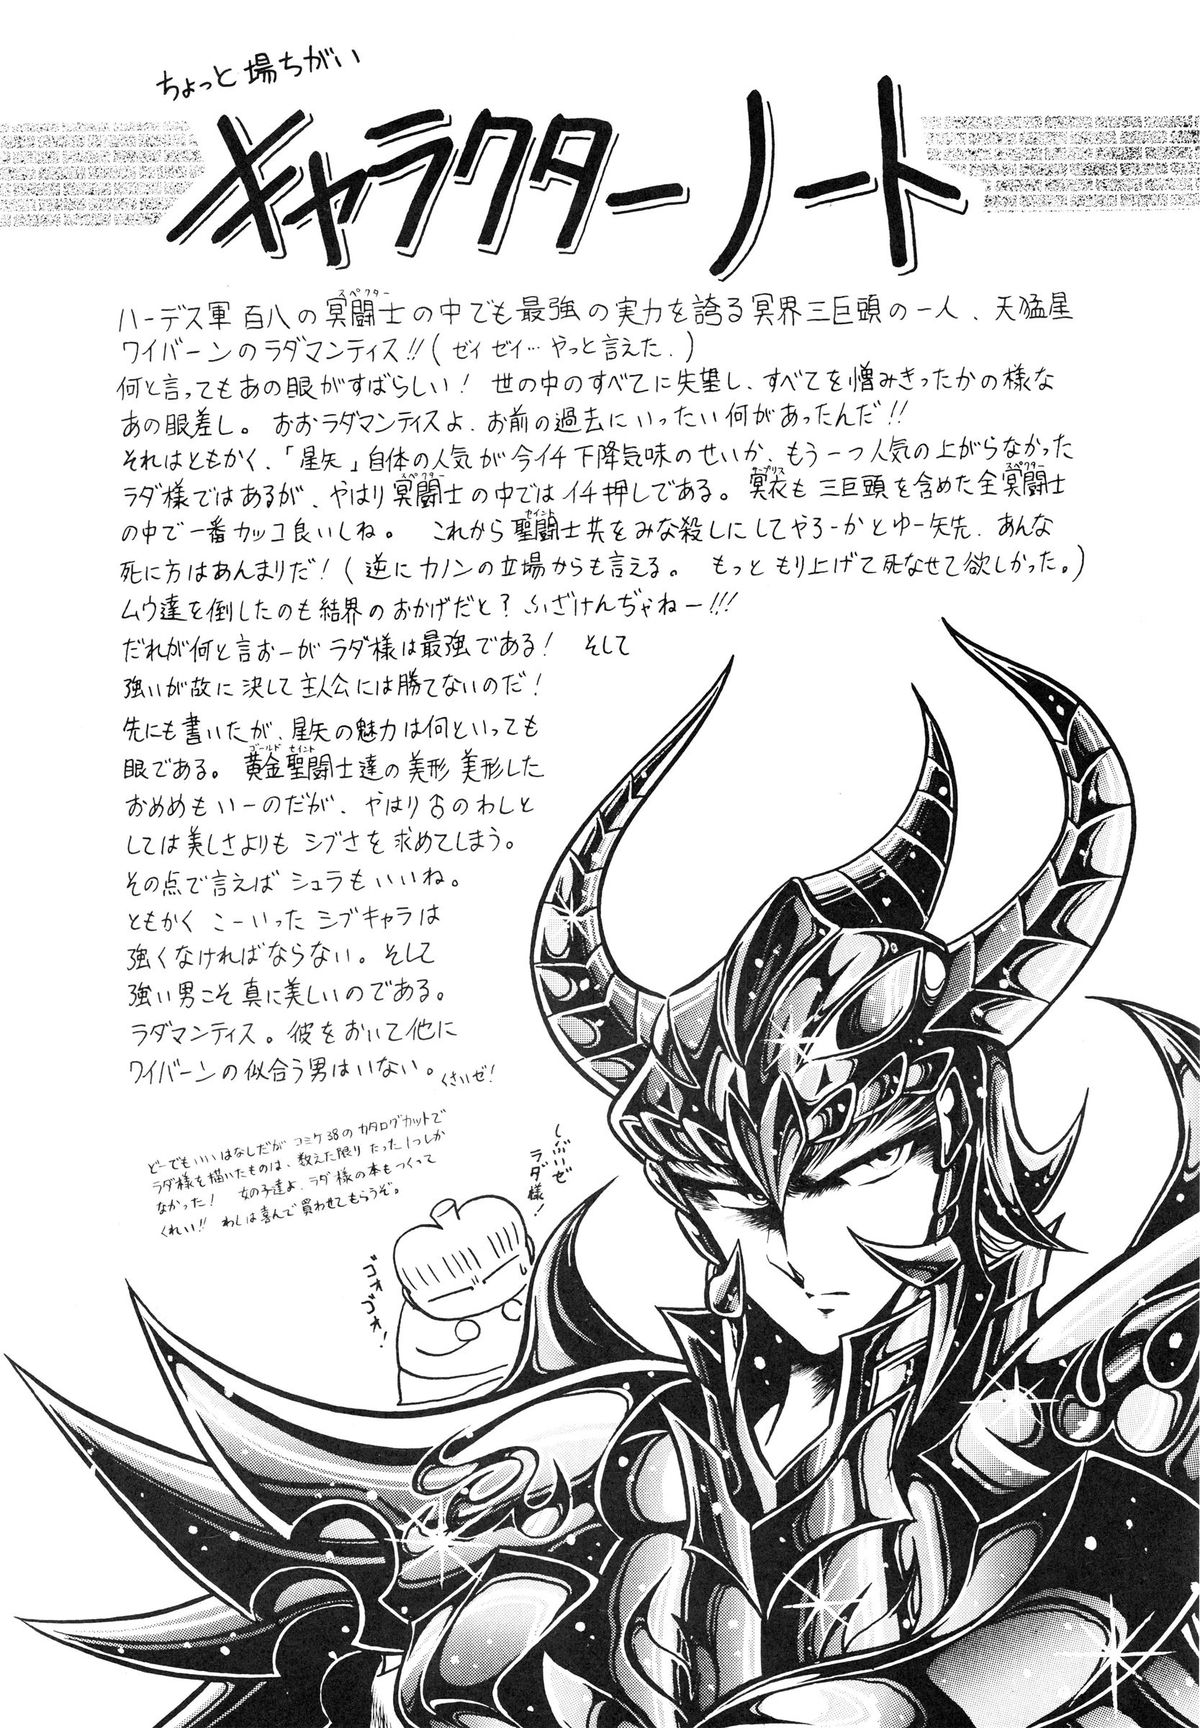 ちょっと場ちがい
キャラクターノート
スペクター
ハーデス軍百八の冥闘士の中でも最強の実力を誇る冥界三巨頭の一人、天猛星
ワイバーンのラダマンティス!!(ゼイゼイ…やっと言えた.)
何と言ってもあの眼がすばらしい! 世の中のすべてに失望し、すべてを憎みきったかの様な
あの眼差し。おおラダマンティスよ、お前の過去にいったい何があったんだ!!
それはともかく、「星矢」自体の人気が今イチ下降気味のせいか、もう一つ人気の上がらなかった
スペクター サープリス スペクター
ラダ様ではあるが、やはり冥闘士の中ではイチ押しである。冥衣も三巨頭を含めた全冥闘士
セイント
の中で一番カッコ良いしね。 これから聖闘士共をみな殺しにしてやろーかとゆー矢先、あんな
死に方はあんまりだ!(逆にカノンの立場からも言える。 もっともり上げて死なせて欲しかった。)
ムウ達を倒したのも結界のおかげだと?ふざけんぢゃねー!!!
だれが何と言おーがラダ様は最強である! そして
強いが故に決して主人公には勝てないのだ!
先にも書いたが、星矢の魅力は何といっても
ゴールド セイント
眼である。黄金聖闘士達の美形美形した
おめめもいーのだが、やはり♂のわしと
しては美しさよりもシブさを求めてしまう。
その点で言えばシュラもいいね。
ともかくこーいったシブキャラは
強くなければならない。そして
強い男こそ真に美しいのである。
ラダマンティス。彼をおいて他に
ワイバーンの似合う男はいない。くさいゼ!
どーでもいいはなしだがコミケ38のカタログカットで
ラダ様を描いたものは、数えた限りたった1つしか
なかった! 女の子達よ、ラダ様の本もつくって
くれい!! わしは喜んで買わせてもらうぞ。
しぶいゼ
ラダ様!
ゴォ
ゴォ!